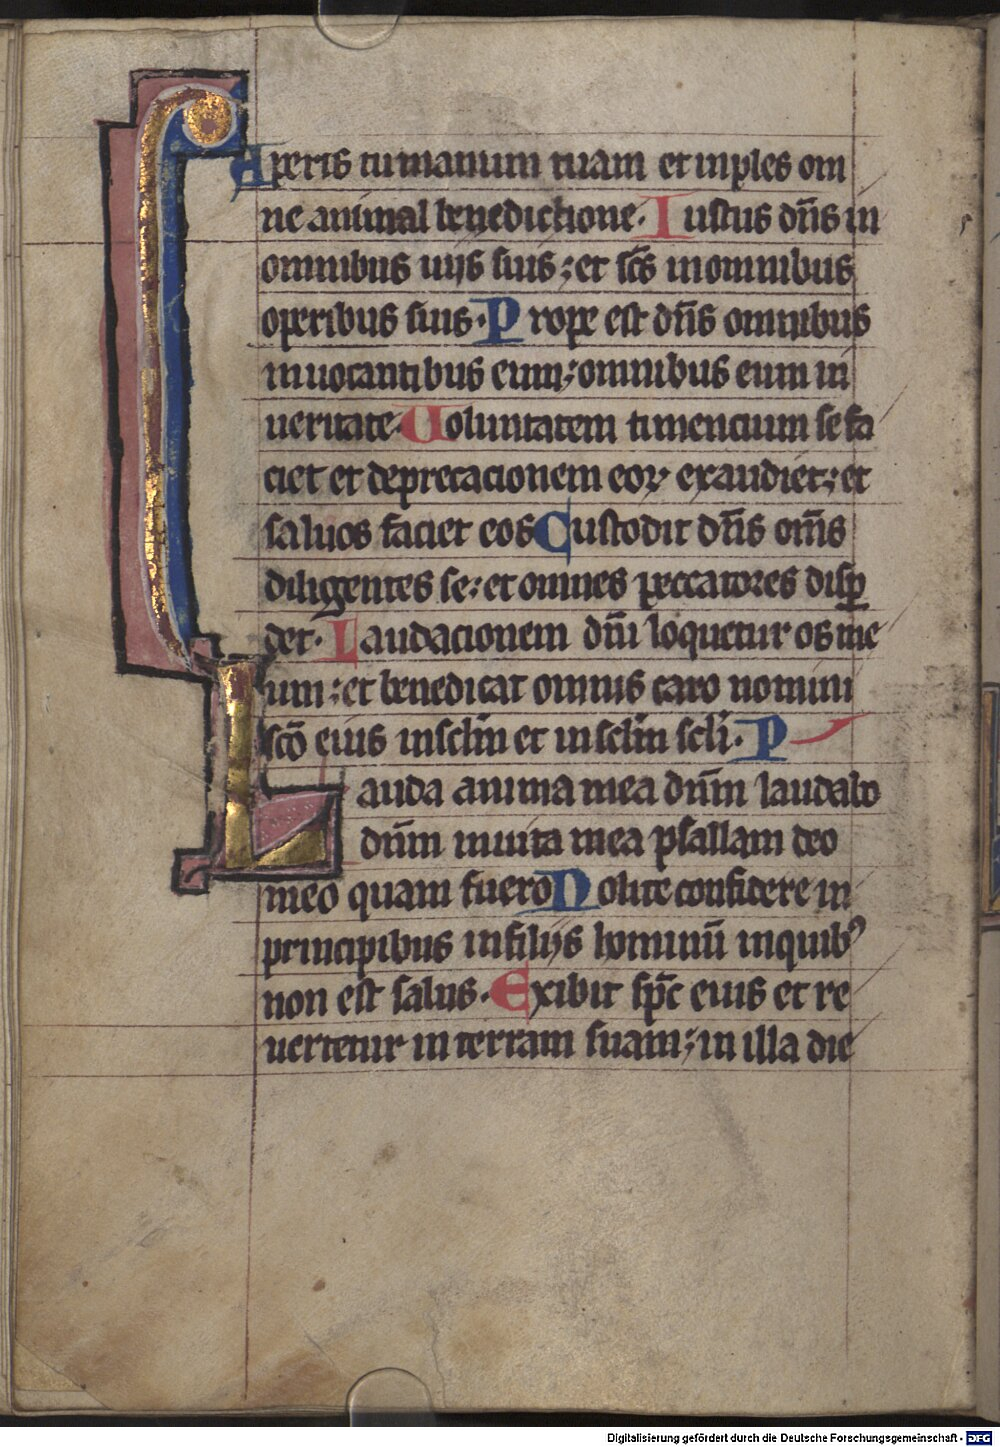 Aperis tu manum tuam et inples om
ne animal benedictione. Iustus dn̄s in
omnibus uijs suis; et sc̄s in omnibus
operibus suis. Prope est dn̄s omnibus
inuocantibus eum; omnibus eum in
ueritate. Uoluntatem timencium se fa
ciet et deprecacionem eoꝝ exaudiet; et
saluos faciet eos Custodit dn̄s om̄s
diligentes se; et omnes peccatores disꝑ
det. Laudacionem dn̄i loquetur os me
um; et benedicat omnis caro nomini
sc̄o eius in sc̄lm et in sc̄lm sc̄li. P
Lauda anima mea dn̄m laudabo
dn̄m in uita mea psallam deo
meo quam fuero Nolite confidere in
principibus in filijs hominū in quibꝰ
non est salus. Exibit sp̄c eius et re
uertetur in terram suam; in illa die
Digitalisierung gefördert durch die Deutsche Forschungsgemeinschaft - DFG